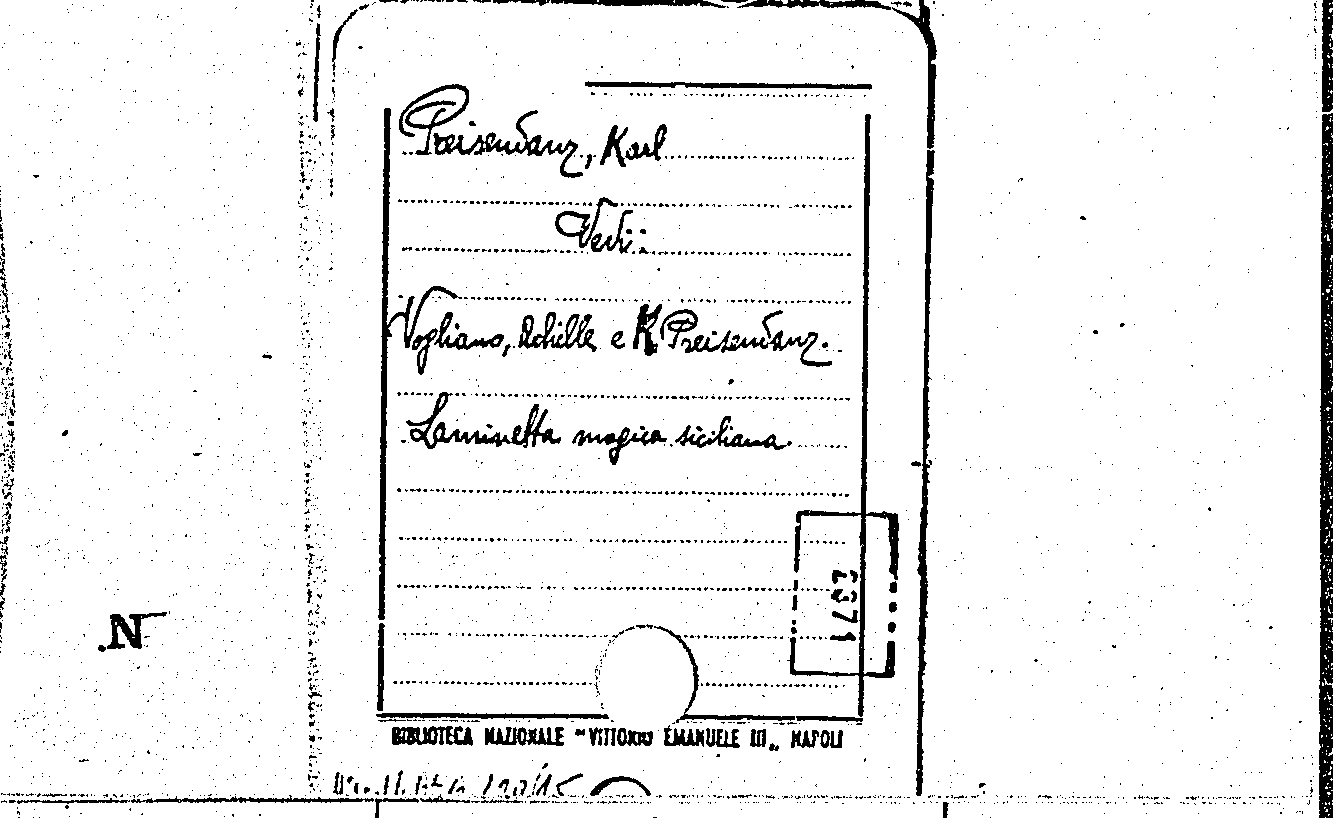 Preisendanz, Karl
Vedi:
Vogliano, Achille e K. Preisendanz.
Laminetta magica siciliana.
N
BIBLIOTECA NAZIONALE "VITTORIO EMANUELE III„ NAPOLI